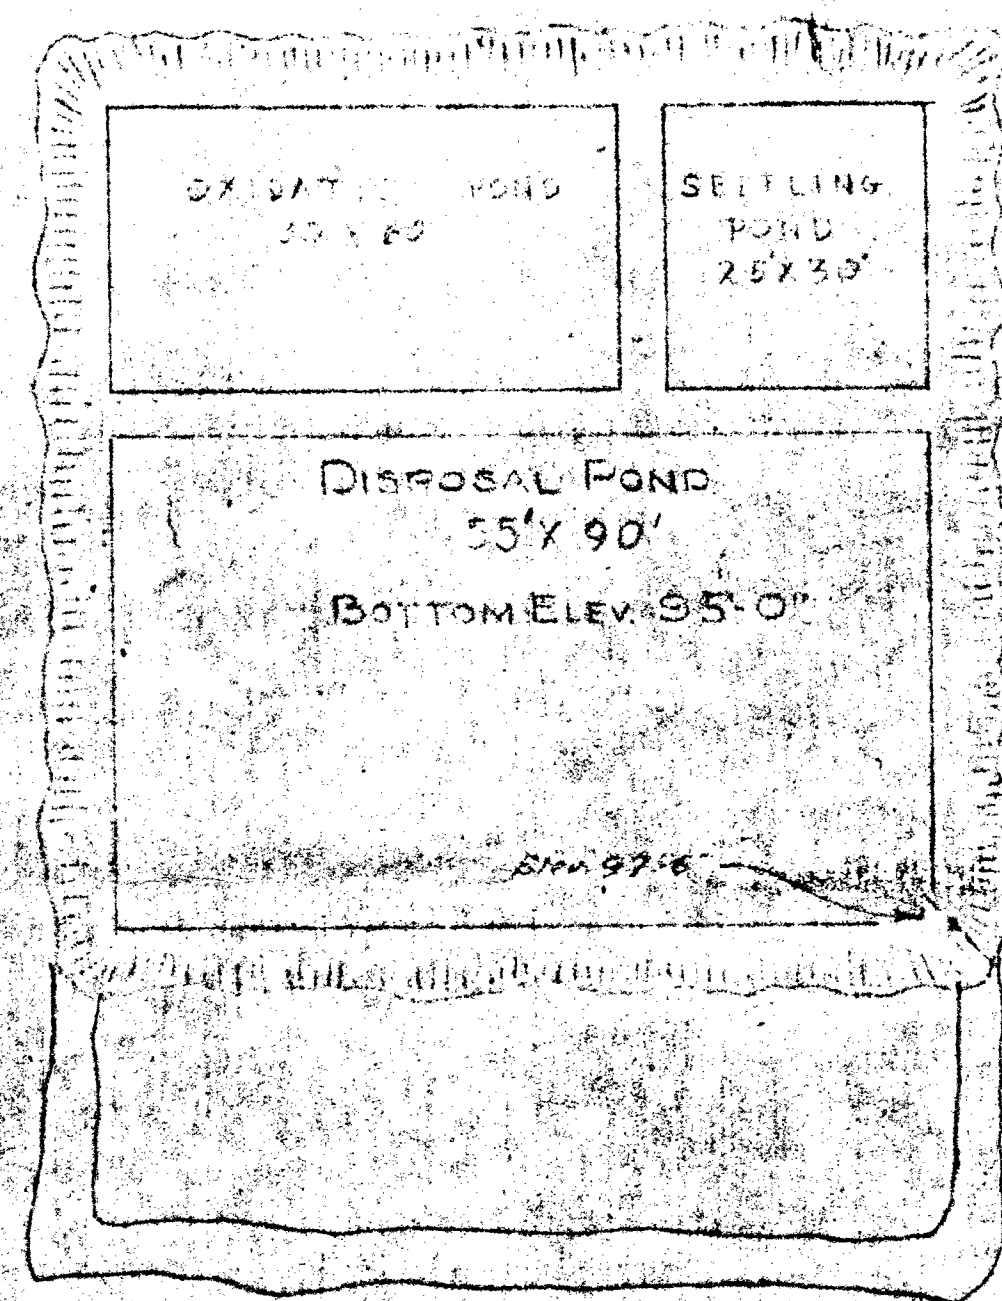 OXIDATION POND
30 X 60
SETTLING
POND
25'X30'
DISPOSAL POND
55'X 90'
BOTTOM ELEV. 95'-0"
Elev. 97'-6"